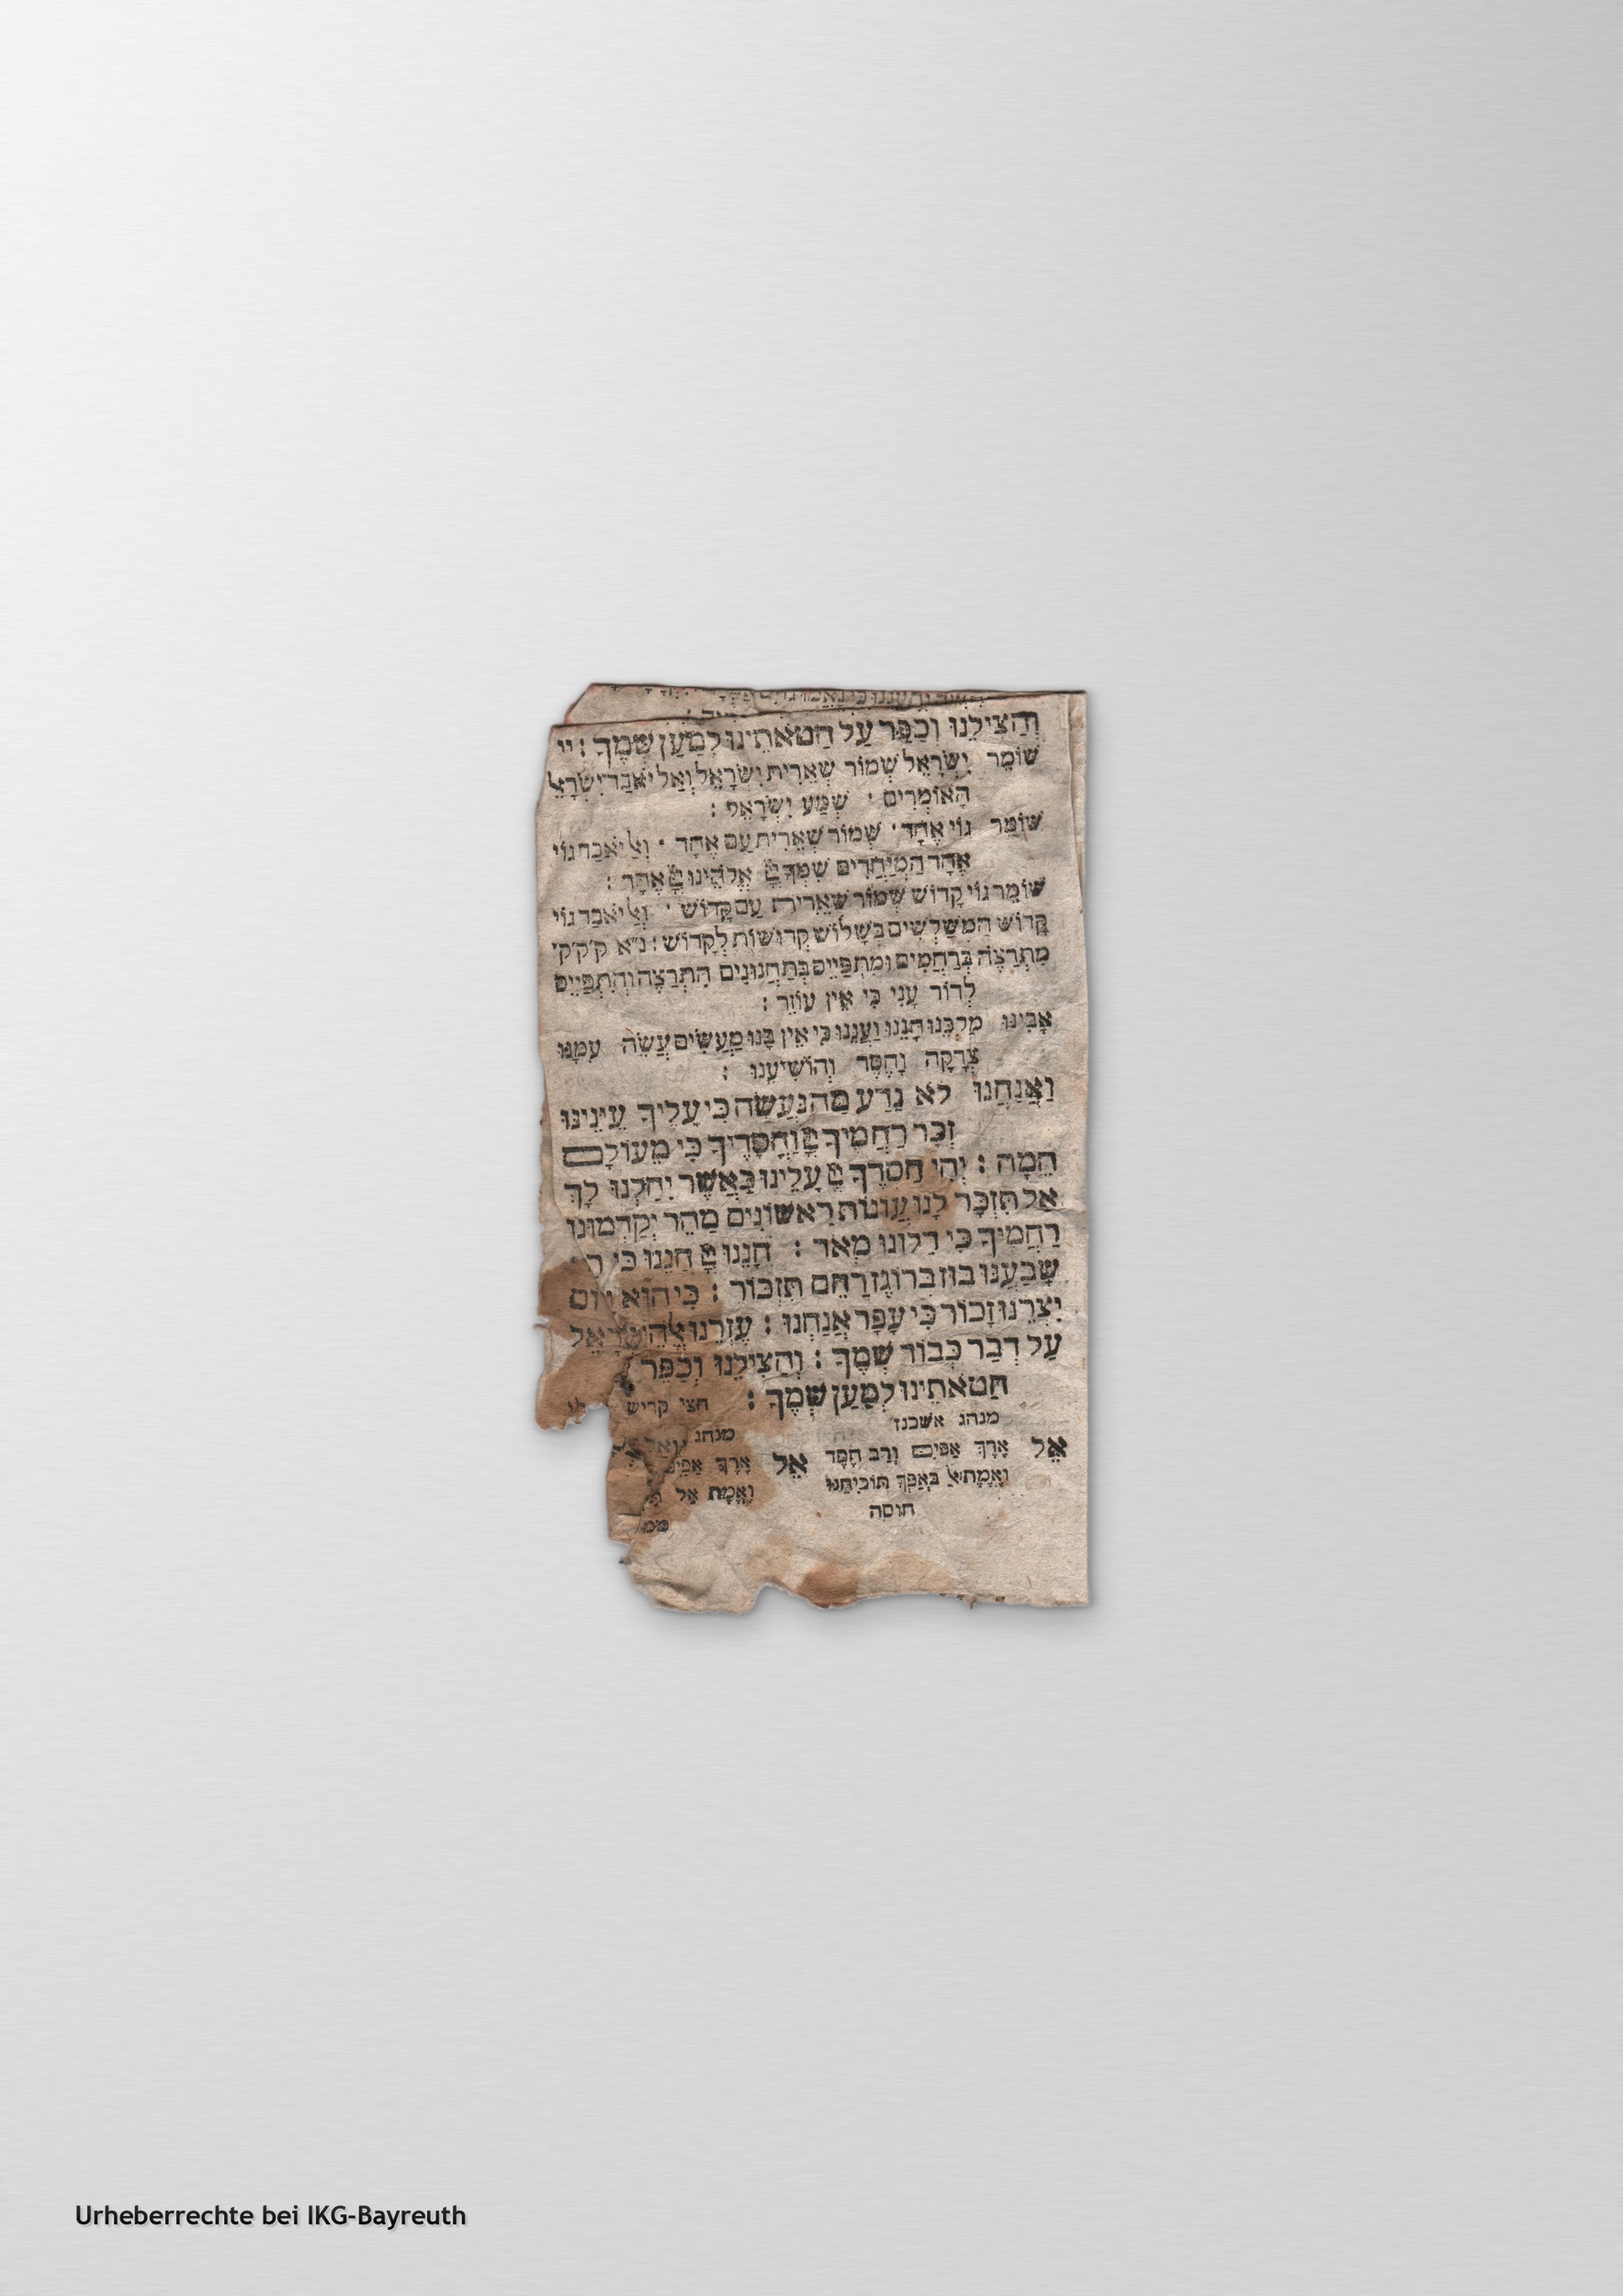 וְהַצִּילֵנוּ וְכַפֵּר עַל חַטֹּאתֵינוּ לְמַעַן שְׁמֶךָ : יי
שׁוֹמֵר יִשְׂרָאֵל שְׁמוֹר שְׁאֵרִית יִשְׂרָאֵל וְאַל יֹאבַד יִשְׂרָאֵ
הָאוֹמְרִים · שְׁמַע יִשְׂרָאֵל :
שׁוֹמֵר גּוֹי אֶחָד · שְׁמוֹר שְׁאֵרִית עַם אֶחָד · וְאַל יֹאבַד גּוֹי
אֶחָד הַמְיַחֲדִים שִׁמְךָ יְיָ אֱלֹהֵינוּ יְיָ אֶחָד :
שׁוֹמֵר גּוֹי קָדוֹשׁ שְׁמוֹר שְׁאֵרִית עַם קָדוֹשׁ · וְאַל יֹאבַד גּוֹי
קָדוֹשׁ הַמְשַׁלְשִׁים בְּשָׁלוֹשׁ קְדוּשׁוֹת לְקָדוֹשׁ : נ״א ק׳ק׳ק׳
מִתְרַצֶּה בְּרַחֲמִים וּמִתְפַּיֵּיס בְּתַחֲנוּנִים הִתְרַצֶּה וְהִתְפַּיֵּיס
לְדוֹר עָנִי כִּי אֵין עוֹזֵר :
אָבִינוּ מַלְכֵּנוּ חָנֵּנוּ וַעֲנֵנוּ כִּי אֵין בָּנוּ מַעֲשִׂים עֲשֵׂה עִמָּנוּ
צְדָקָה וָחֶסֶד וְהוֹשִׁיעֵנוּ :
וַאֲנַחְנוּ לֹא נֵדַע מַה נַּעֲשֶׂה כִּי עָלֶיךָ עֵינֵינוּ
זְכֹר רַחֲמֶיךָ יְיָ וַחֲסָדֶיךָ כִּי מֵעוֹלָם
הֵמָּה : יְהִי חַסְדְּךָ יְיָ עָלֵינוּ כַּאֲשֶׁר יִחַלְנוּ לָךְ
אַל תִּזְכָּר לָנוּ עֲוֹנוֹת רִאשׁוֹנִים מַהֵר יְקַדְּמוּנוּ
רַחֲמֶיךָ כִּי דַלּוֹנוּ מְאֹד : חָנֵּנוּ יְיָ חָנֵּנוּ כִּי רַ
שָׂבַעְנוּ בוּז בְּרוֹגֶז רַחֵם תִּזְכּוֹר : כִּי הוּא יוֹם
יִצְרֵנוּ זָכוּר כִּי עָפָר אֲנָחְנוּ : עָזְרֵנוּ אֱלֹהֵי
עַל דְּבַר כְּבוֹד שְׁמֶךָ : וְהַצִּילֵנוּ וְכַפֵּר
חַטֹּאתֵינוּ לְמַעַן שְׁמֶךָ : חצי קדיש
מנהג אשכנז
מנהג
אֵל אֶרֶךְ אַפַּיִם וְרַב חֶסֶד
וֶאֱמֶת אַל בְּאַפְּךָ תּוֹכִיחֵנוּ
חוסה
אֵל אֶרֶךְ אַפַּיִם
וֶאֱמֶת אַל
Urheberrechte bei IKG-Bayreuth